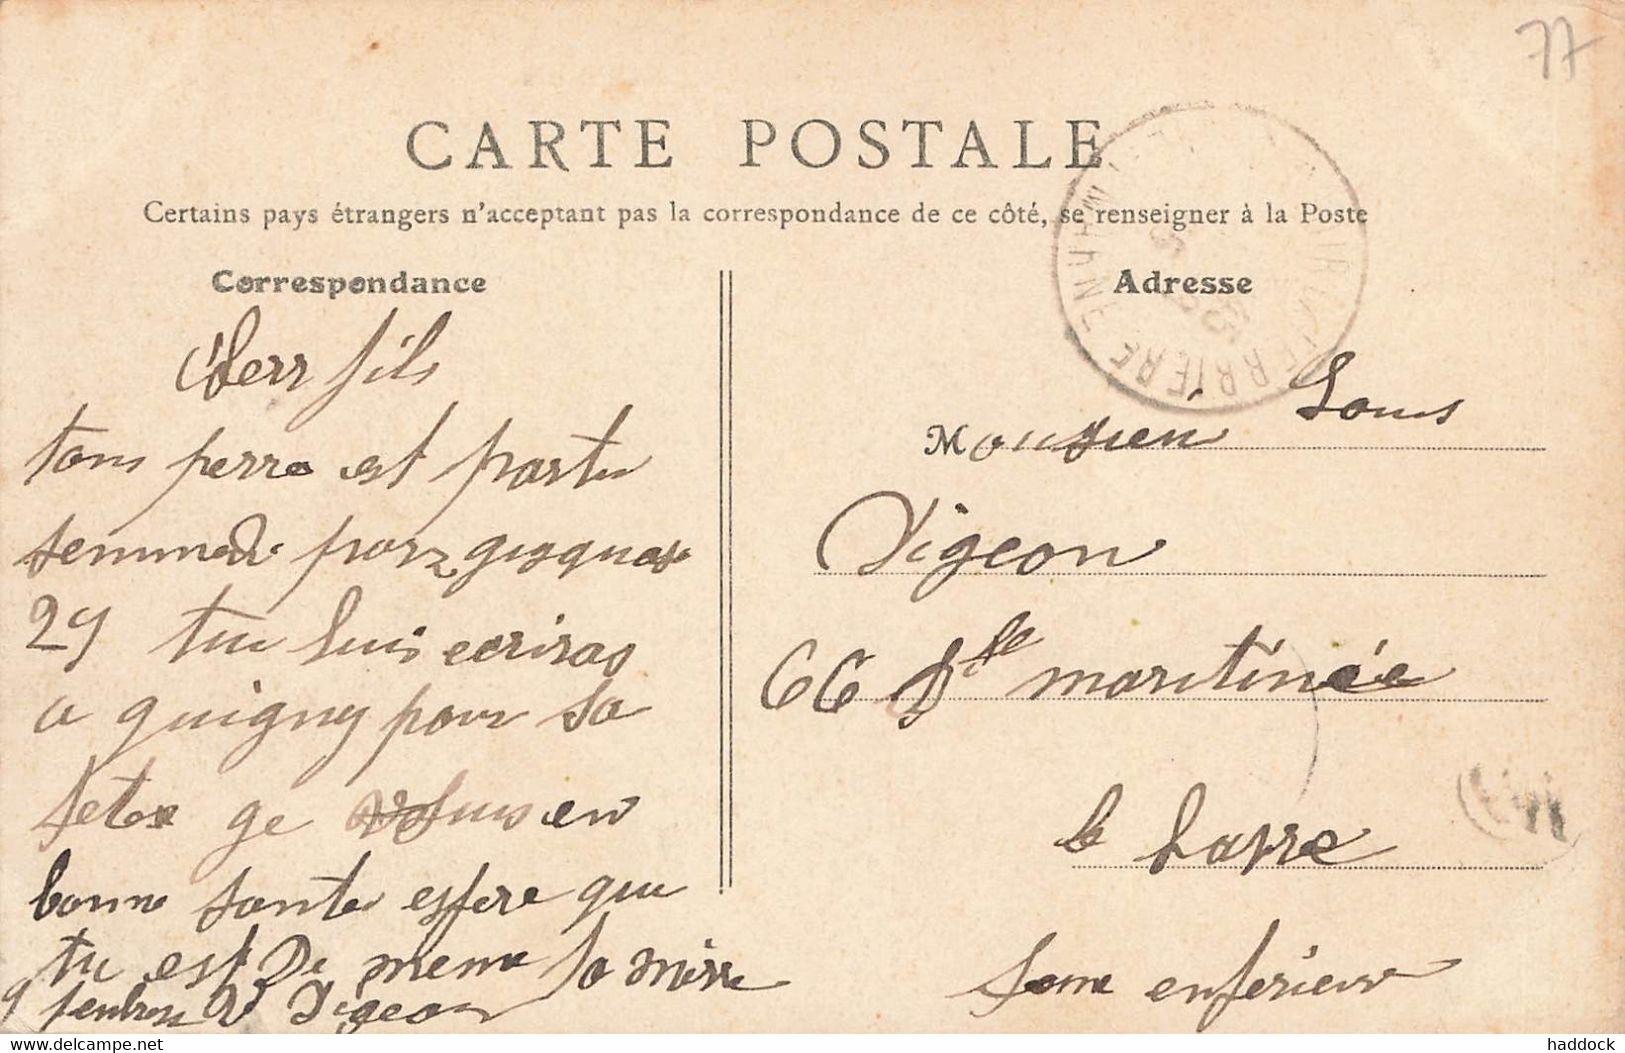 77
CARTE POSTALE
Certains pays étrangers n'acceptant pas la correspondance de ce côté, se renseigner à la Poste
Correspondance
Cherr fils
ton perre est partu
semmedi porz jusquas
29 tu lui ecriras
a guigny pour sa
fete ge suis en
bonne sante espere que
tu est De meme ta merre
Vigeon
Adresse
Monsieur Louis
Vigeon
66 martinée
le havre
Seine enferieur
FERRIERE
www.delcampe.net
haddock